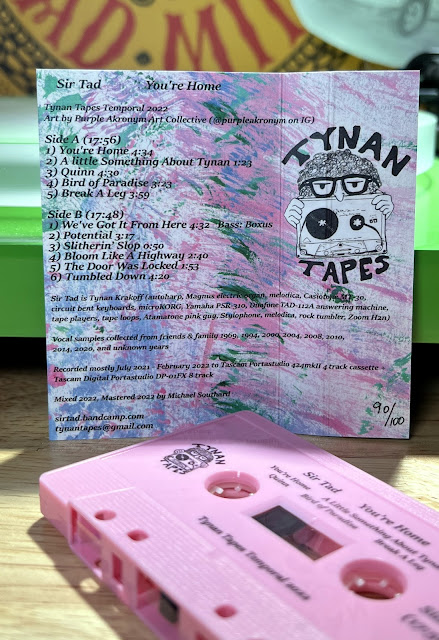 AD MIL
Sir Tad You're Home
Tynan Tapes Temporal 2022
Art by Purple Akronym Art Collective (@purpleakronym on IG)
Side A (17:56)
1) You're Home 4:34
2) A little Something About Tynan 1:23
3) Quinn 4:30
4) Bird of Paradise 3:23
5) Break A Leg 3:59
Side B (17:48)
1) We've Got It From Here 4:32 Bass: Boxus
2) Potential 3:17
3) Slitherin' Slop 0:50
4) Bloom Like A Highway 2:40
5) The Door Was Locked 1:53
6) Tumbled Down 4:20
TYNAN
TAPES
Sir Tad is Tynan Krakoff (autoharp, Magnus electric organ, melodica, Casiotone MT-30,
circuit bent keyboards, microKORG, Yamaha PSR-310, Duofone TAD-112A answering machine,
tape players, tape loops, Atamatone pink guy, Stylophone, melodica, rock tumbler, Zoom H2n)
Vocal samples collected from friends & family 1969, 1994, 2000, 2004, 2008, 2010,
2014, 2020, and unknown years
Recorded mostly July 2021 - February 2022 to Tascam Portastudio 424mkII 4 track cassette +
Tascam Digital Portastudio DP-01FX 8 track
Mixed 2022, Mastered 2022 by Michael Southard
sirtad.bandcamp.com
tynantapes@gmail.com
90/100
TYNAN
TAPES
Sir Tad You're Home
You're Home A little Something About Tynan
Quinn Bird of Paradise Break A Leg
Tynan Tapes Temporal 2022